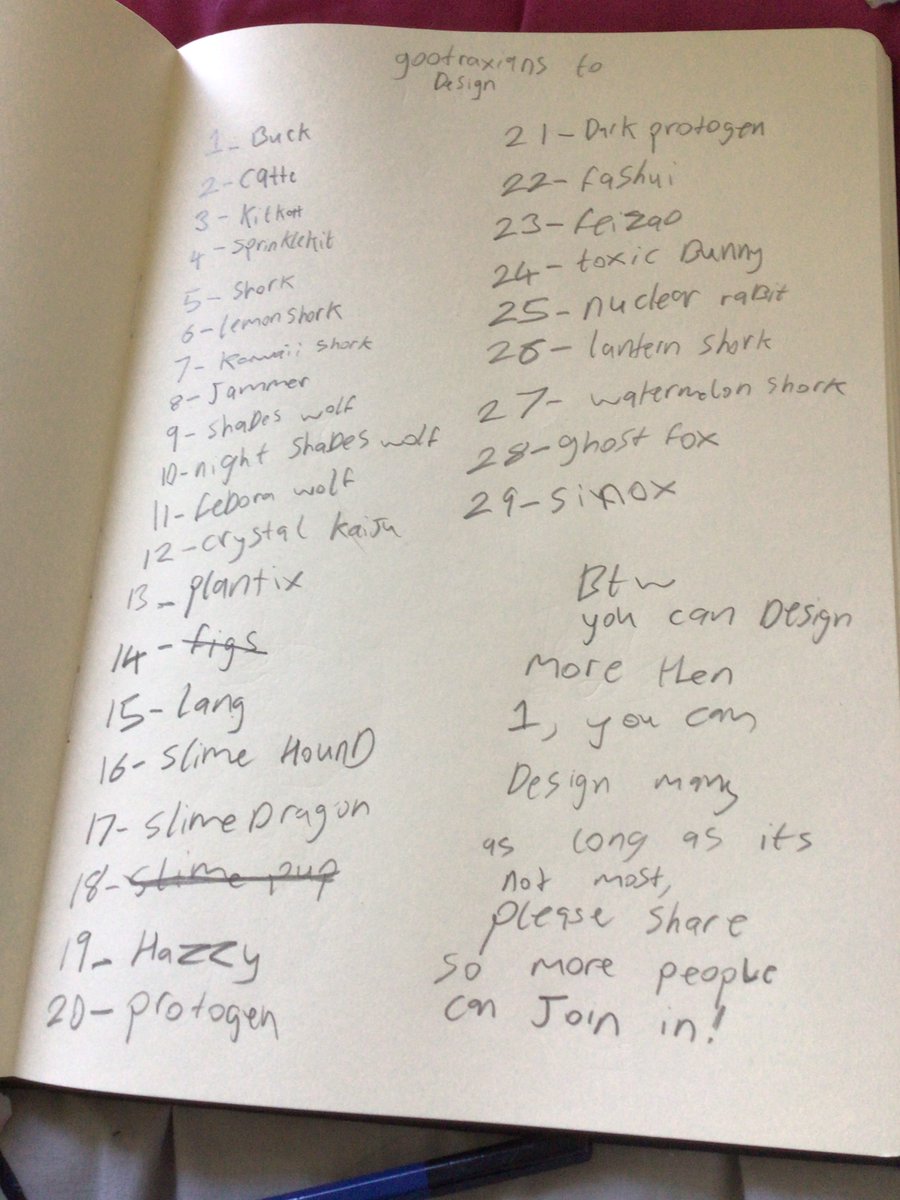 gootraxians to
Design
1- Buck
2- catte
3- Kitkatt
4- sprinklekit
5- shork
6- lemon shork
7- Kawaii shork
8- Jammer
9- shaDes wolf
10- night shaDes wolf
11- feDora wolf
12- crystal KaiJu
13- plantix
14- figs
15- lang
16- slime HounD
17- slime Dragon
18- slime pup
19- Hazzy
20- protogen
21- Dark protogen
22- fashui
23- feizao
24- toxic Bunny
25- nuclear raBit
26- lantern shork
27- watermelon shork
28- ghost fox
29- sinox
Btw
you can Design
more then
1, you can
Design many
as long as its
not most,
please share
so more people
can Join in!